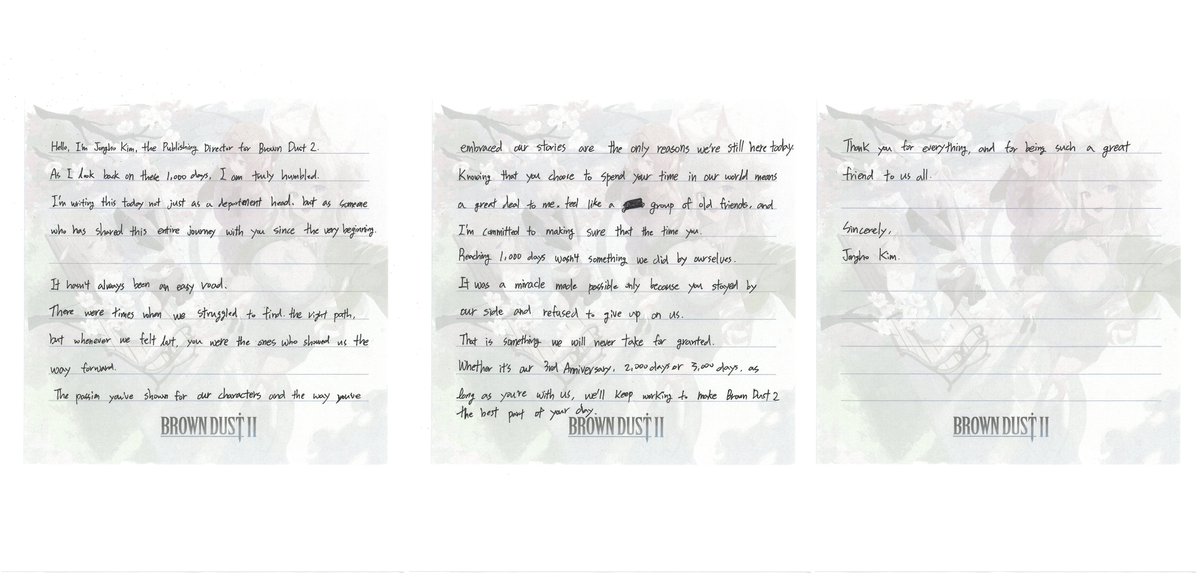 Hello, I'm Jungho Kim, the Publishing Director for Brown Dust 2.
As I look back on these 1,000 days, I am truly humbled.
I'm writing this today not just as a department head, but as someone
who has shared this entire journey with you since the very beginning.
It hasn't always been an easy road.
There were times when we struggled to find the right path,
but whenever we felt lost, you were the ones who showed us the
way forward.
The passion you've shown for our characters and the way you've
BROWN DUST II
embraced our stories are the only reasons we're still here today.
Knowing that you choose to spend your time in our world means
a great deal to me. feel like a group of old friends, and
I'm committed to making sure that the time you.
Reaching 1,000 days wasn't something we did by ourselves.
It was a miracle made possible only because you stayed by
our side and refused to give up on us.
That is something we will never take for granted.
Whether it's our 3rd Anniversary, 2,000 days or 3,000 days, as
long as you're with us, we'll keep working to make Brown Dust 2
the best part of your day.
BROWN DUST II
Thank you for everything, and for being such a great
friend to us all.
Sincerely,
Jungho Kim.
BROWN DUST II